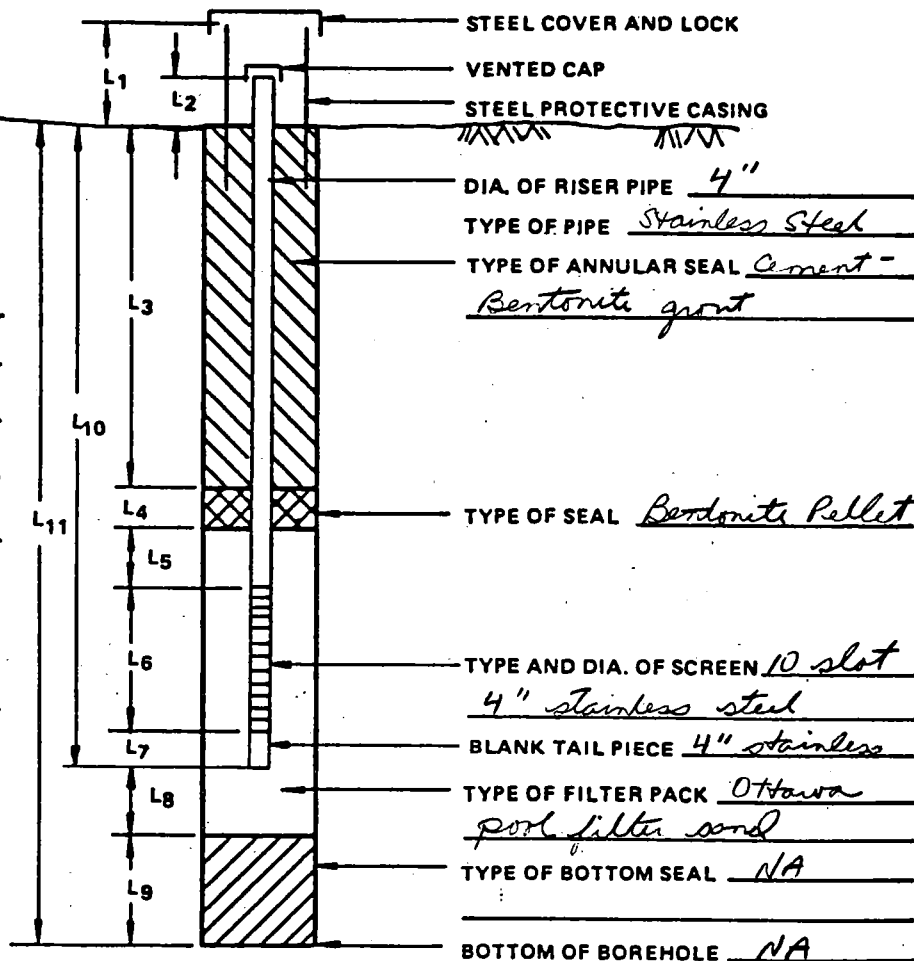 STEEL COVER AND LOCK
L1
VENTED CAP
L2
STEEL PROTECTIVE CASING
DIA. OF RISER PIPE 4"
TYPE OF PIPE Stainless Steel
TYPE OF ANNULAR SEAL Cement-
Bentonite grout
L3
L10
L11
L4
TYPE OF SEAL Bentonite Pellet
L5
L6
TYPE AND DIA. OF SCREEN 10 slot
4" stainless steel
L7
BLANK TAIL PIECE 4" stainless
L8
TYPE OF FILTER PACK Ottawa
pool filter sand
TYPE OF BOTTOM SEAL NA
L9
BOTTOM OF BOREHOLE NA